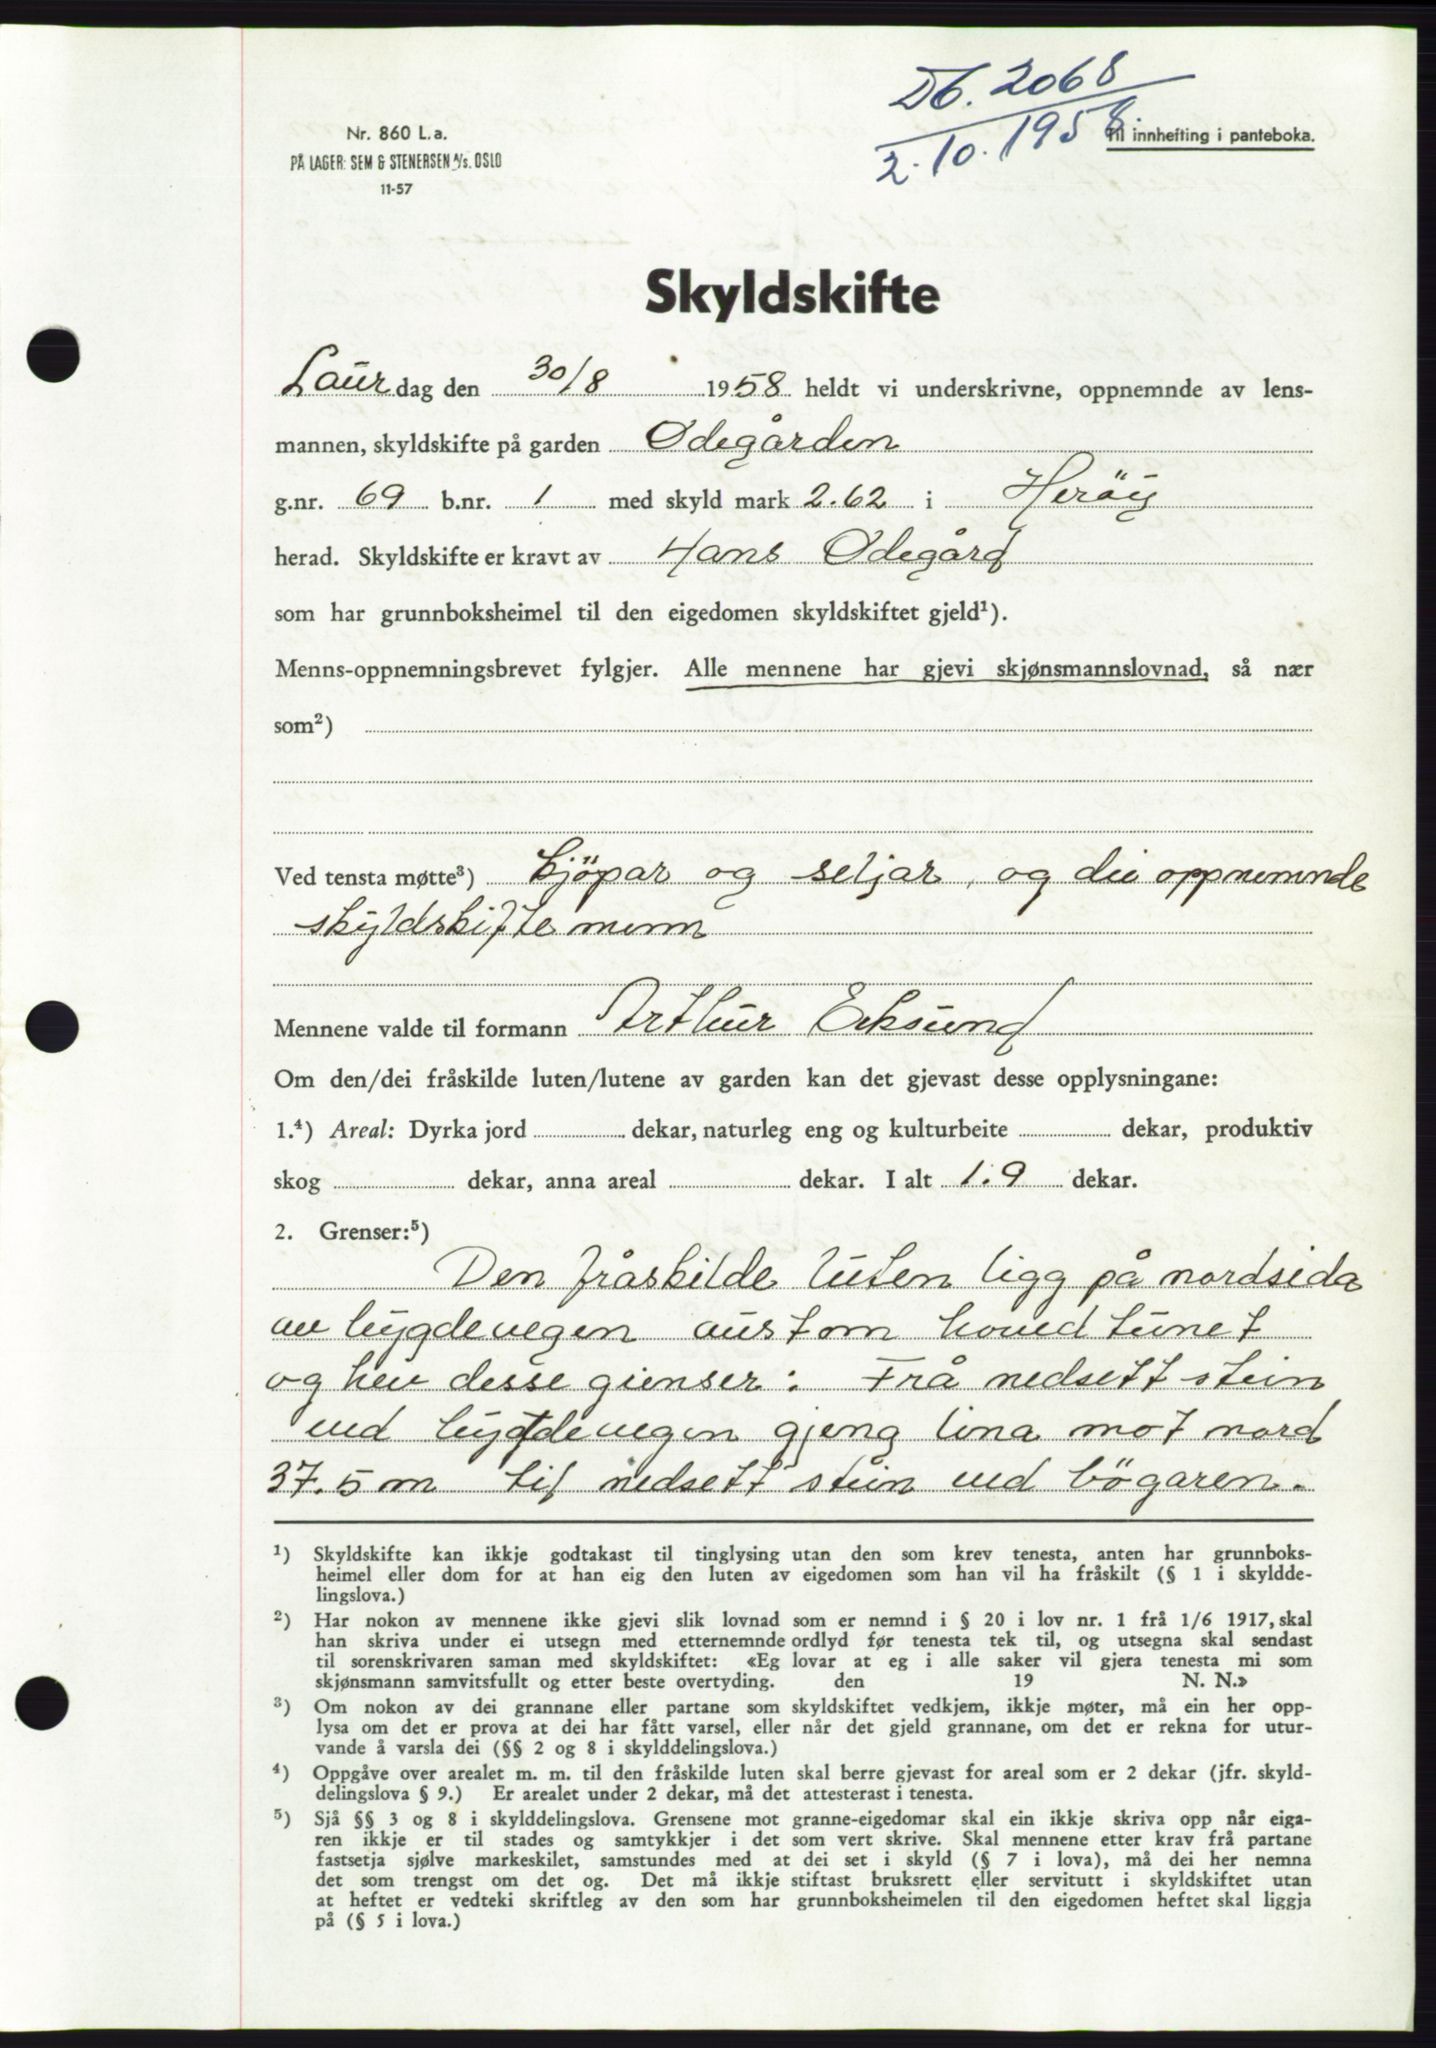 Db. 2068
2.10.1958
Til innhefting i panteboka.
Nr. 860 L.a.
PÅ LAGER: SEM & STENERSEN A/S. OSLO
11-57
Skyldskifte
Laurdag den 30/8 1958 heldt vi underskrivne, oppnemnde av lens-
mannen, skyldskifte på garden Ødegården
g.nr. 69 b.nr. 1 med skyld mark 2.62 i Heröy
herad. Skyldskifte er kravt av Hans Ødegård
som har grunnboksheimel til den eigedomen skyldskiftet gjeld¹).
Menns-oppnemningsbrevet fylgjer. Alle mennene har gjevi skjønsmannslovnad, så nær
som²)
Ved tensta møtte³) kjöpar og seljar, og dei oppnemnde
skyldskiftemenn
Mennene valde til formann Arthur Eiksund
Om den/dei fråskilde luten/lutene av garden kan det gjevast desse opplysningane:
1.⁴) Areal: Dyrka jord dekar, naturleg eng og kulturbeite dekar, produktiv
skog dekar, anna areal dekar. I alt 1.9 dekar.
2. Grenser:⁵)
Den fråskilde luten ligg på nordsida
av bygdevegen austom hovedtunet
og hev desse grenser: Frå nedsett stein
ved bygdevegen gjeng lina mot nord
37.5 m til nedsett stein ved bögaren.
¹) Skyldskifte kan ikkje godtakast til tinglysing utan den som krev tenesta, anten har grunnboks-
heimel eller dom for at han eig den luten av eigedomen som han vil ha fråskilt (§ 1 i skyldde-
lingslova.)
²) Har nokon av mennene ikke gjevi slik lovnad som er nemnd i § 20 i lov nr. 1 frå 1/6 1917, skal
han skriva under ei utsegn med etternemnde ordlyd før tenesta tek til, og utsegna skal sendast
til sorenskrivaren saman med skyldskiftet: «Eg lovar at eg i alle saker vil gjera tenesta mi som
skjønsmann samvitsfullt og etter beste overtyding. den 19 N. N.»
³) Om nokon av dei grannane eller partane som skyldskiftet vedkjem, ikkje møter, må ein her opp-
lysa om det er prova at dei har fått varsel, eller når det gjeld grannane, om det er rekna for utur-
vande å varsla dei (§§ 2 og 8 i skylddelingslova.)
⁴) Oppgåve over arealet m. m. til den fråskilde luten skal berre gjevast for areal som er 2 dekar (jfr. skyld-
delingslova § 9.) Er arealet under 2 dekar, må det attesterast i tenesta.
⁵) Sjå §§ 3 og 8 i skylddelingslova. Grensene mot granne-eigedomar skal ein ikkje skriva opp når eiga-
ren ikkje er til stades og samtykkjer i det som vert skrive. Skal mennene etter krav frå partane
fastsetja sjølve markeskilet, samstundes med at dei set i skyld (§ 7 i lova), må dei her nemna
det som trengst om det og. Det må ikkje stiftast bruksrett eller servitutt i skyldskiftet utan
at heftet er vedteki skriftleg av den som har grunnboksheimelen til den eigedomen heftet skal liggja
på (§ 5 i lova.)